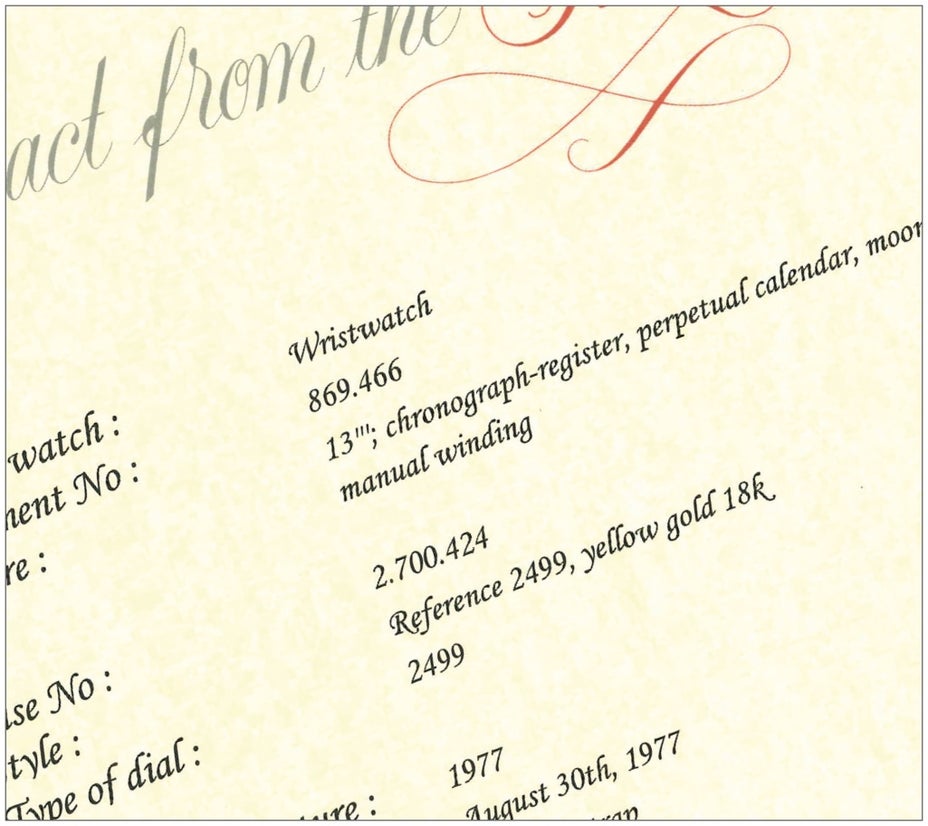 act from the
watch : Wristwatch
ment No : 869.466
re : 13'''; chronograph-register, perpetual calendar, moon
manual winding
se No : 2.700.424
tyle : Reference 2499, yellow gold 18k
Type of dial : 2499
ure : 1977
August 30th, 1977
rap